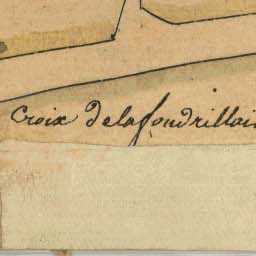 Croix de la fondrillai